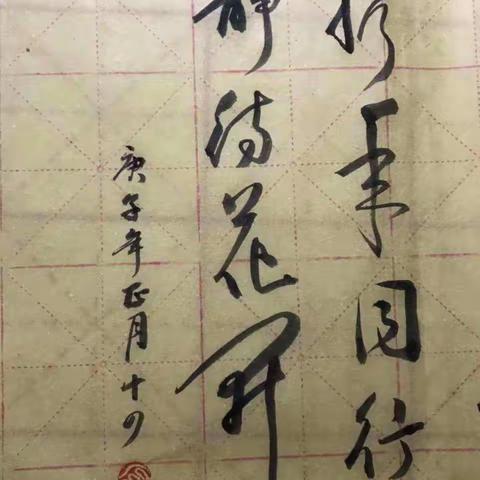 携手同行
静待花开
庚子年正月十四